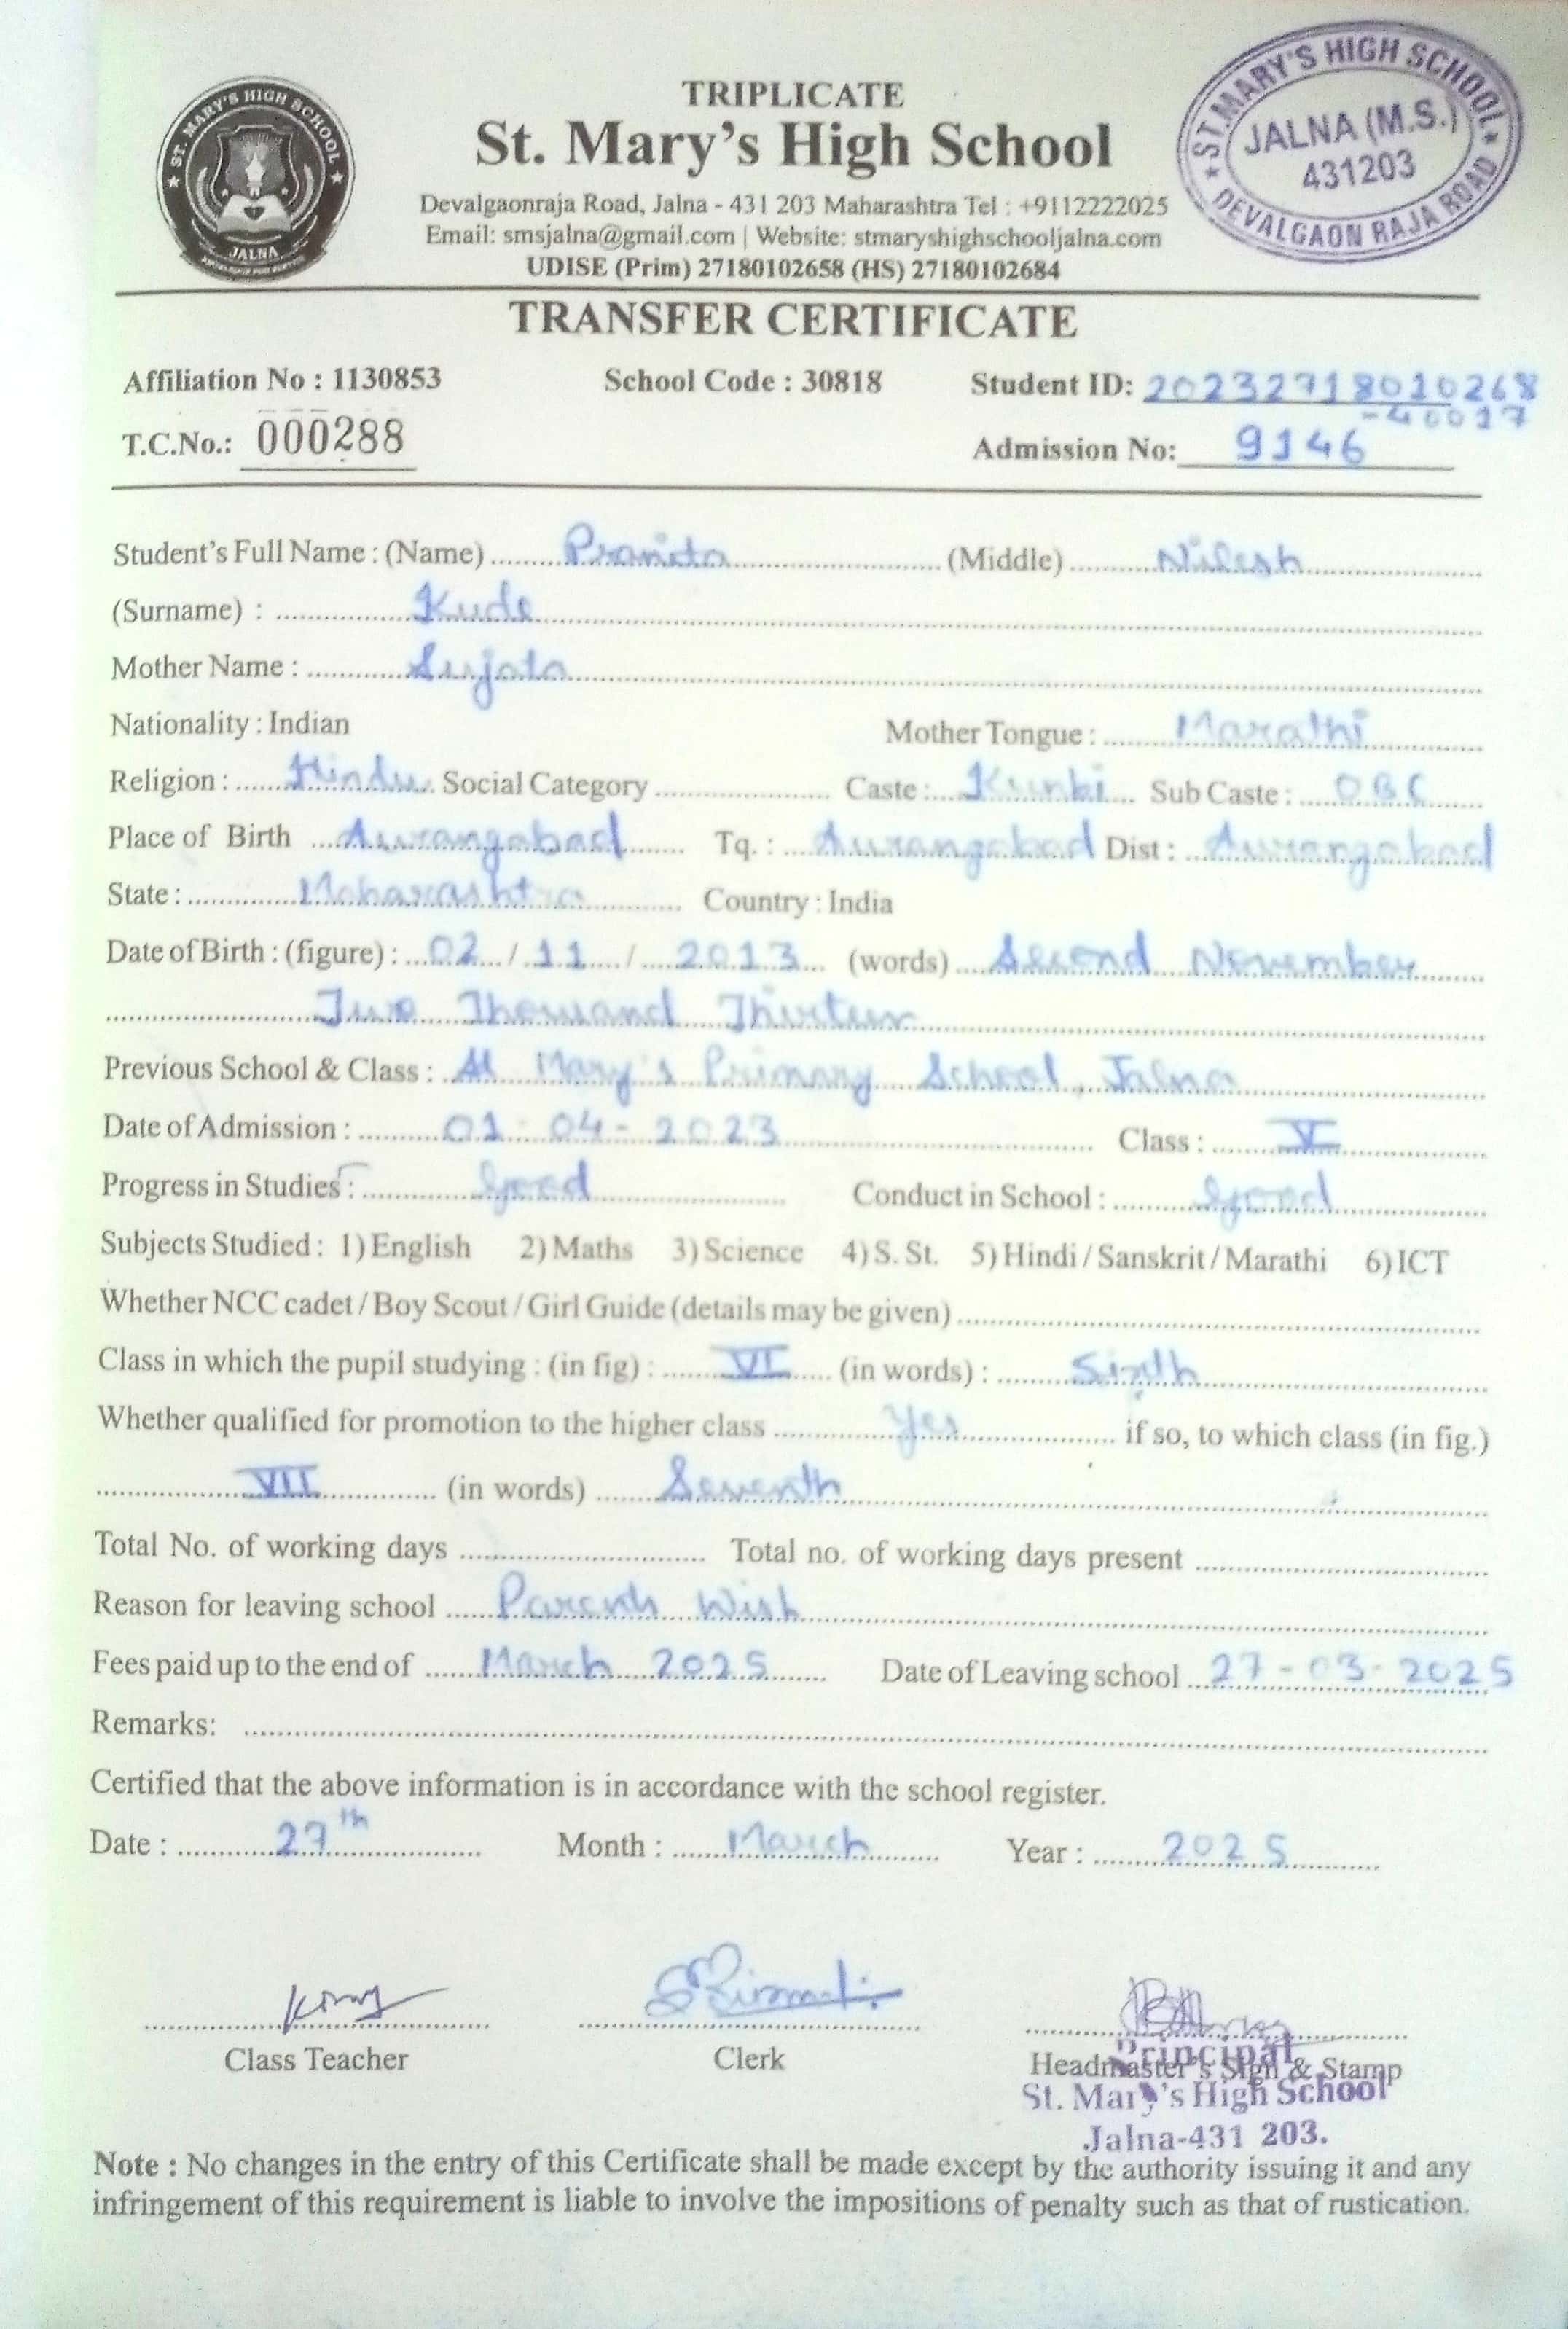 ST. MARY'S HIGH SCHOOL
JALNA
TRIPLICATE
St. Mary's High School
Devalgaonraja Road, Jalna - 431 203 Maharashtra Tel : +9112222025
Email: smsjalna@gmail.com | Website: stmaryshighschooljalna.com
UDISE (Prim) 27180102658 (HS) 27180102684
ST. MARY'S HIGH SCHOOL
JALNA (M.S.)
431203
DEVALGAON RAJA ROAD
TRANSFER CERTIFICATE
Affiliation No : 1130853 School Code : 30818 Student ID: 20232718010268
-40017
T.C.No.: 000288 Admission No: 9146
Student's Full Name : (Name) Pranita (Middle) Nilesh
(Surname) : Kude
Mother Name : Sujata
Nationality : Indian Mother Tongue : Marathi
Religion : Hindu Social Category Caste : Kunbi Sub Caste : OBC
Place of Birth Aurangabad Tq. : Aurangabad Dist : Aurangabad
State : Maharashtra Country : India
Date of Birth : (figure) : 02 / 11 / 2013 (words) Second November
Two Thousand Thirteen
Previous School & Class : St Mary's Primary School, Jalna
Date of Admission : 01-04-2023 Class : V
Progress in Studies : Good Conduct in School : Good
Subjects Studied : 1) English 2) Maths 3) Science 4) S. St. 5) Hindi / Sanskrit / Marathi 6) ICT
Whether NCC cadet / Boy Scout / Girl Guide (details may be given)
Class in which the pupil studying : (in fig) : VI (in words) : Sixth
Whether qualified for promotion to the higher class Yes if so, to which class (in fig.)
VII (in words) Seventh
Total No. of working days Total no. of working days present
Reason for leaving school Parents Wish
Fees paid up to the end of March 2025 Date of Leaving school 27-03-2025
Remarks:
Certified that the above information is in accordance with the school register.
Date : 27th Month : March Year : 2025
Class Teacher Clerk Headmaster's Sign & Stamp
Principal
St. Mary's High School
Jalna-431 203.
Note : No changes in the entry of this Certificate shall be made except by the authority issuing it and any
infringement of this requirement is liable to involve the impositions of penalty such as that of rustication.